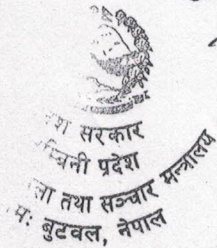 सरकार
प्रदेश
तथा सञ्चार मन्त्रालय
बुटवल, नेपाल